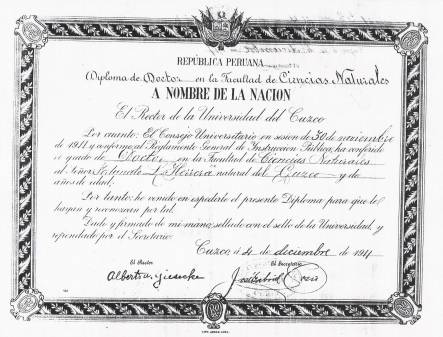 REPÚBLICA PERUANA
Diploma de Doctor en la Facultad de Ciencias Naturales
A NOMBRE DE LA NACION
El Rector de la Universidad del Cuzco
Por cuanto: El Consejo Universitario en sesion de 30 de noviembre
de 1911 y conforme al Reglamento General de Instruccion Pública, ha conferido
el grado de Doctor en la Facultad de Ciencias Naturales
al Señor L. Herrera natural del Cuzco y de
años de edad;
Por tanto: he venido en expedirle el presente Diploma para que le
hayan y reconozcan por tal.
Dado y firmado de mi mano, sellado con el sello de la Universidad, y
refrendado por el Secretario.
Cuzco, á 4 de diciembre de 1911
El Rector El Secretario
Alberto A. Giesecke